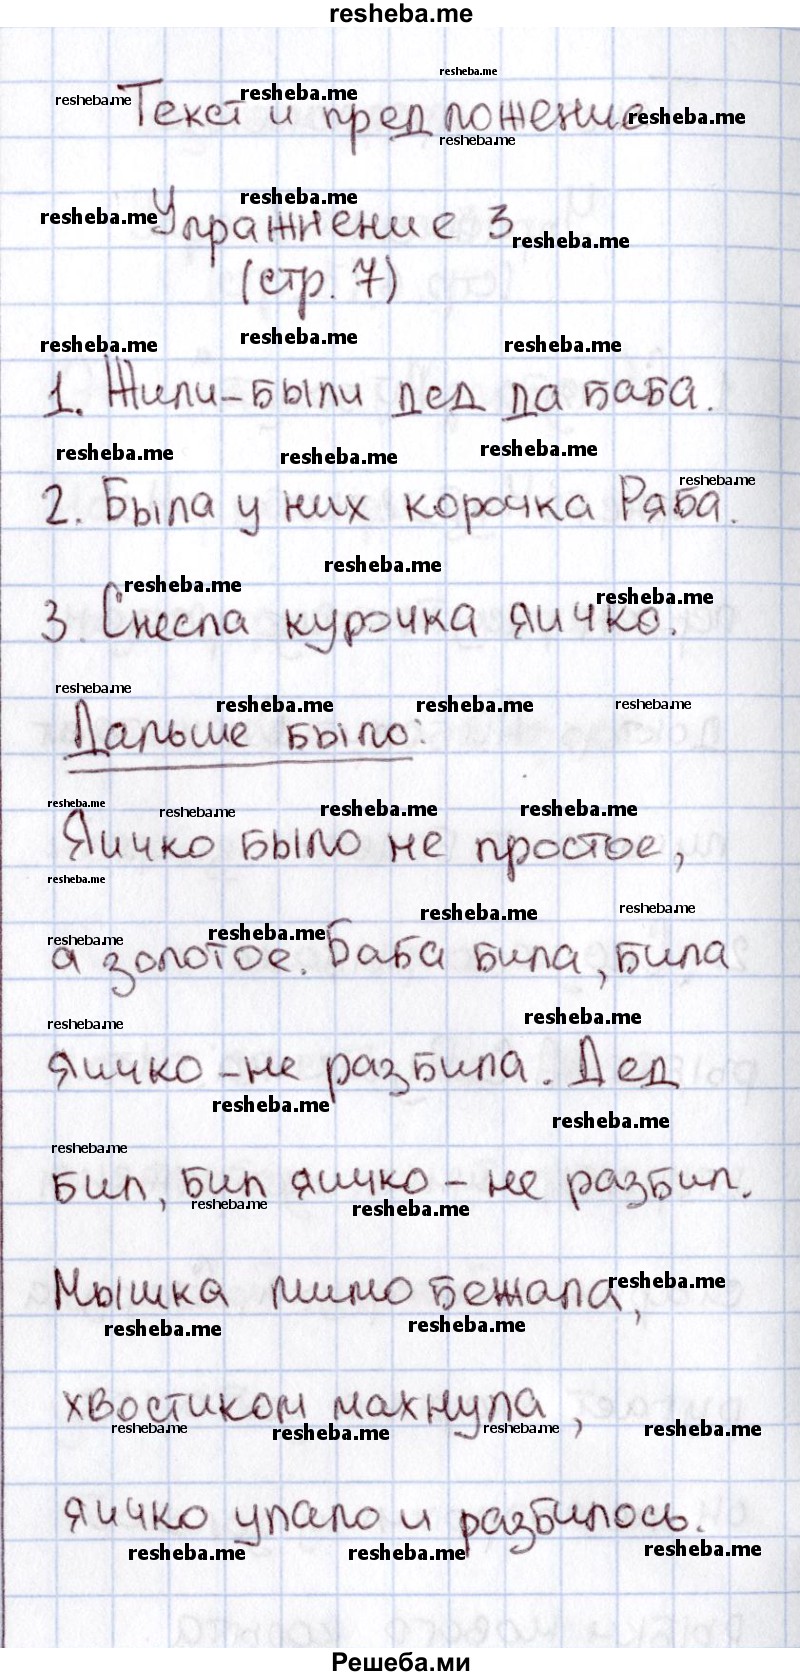 resheba.me
Текст и предложение
Упражнение 3
(стр. 7)
1. Жили-были дед да баба.
2. Была у них корочка Ряба.
3. Снесла курочка яичко.
Дальше было:
Яичко было не простое,
а золотое. Баба била, била
яичко - не разбила. Дед
бил, бил яичко - не разбил.
Мышка мимо бежала,
хвостиком махнула,
яичко упало и разбилось.
Решеба.ми